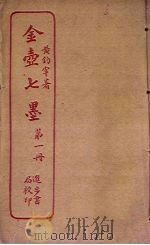 黃鈞宰著
金壺七墨
第一冊
進步書
局校印